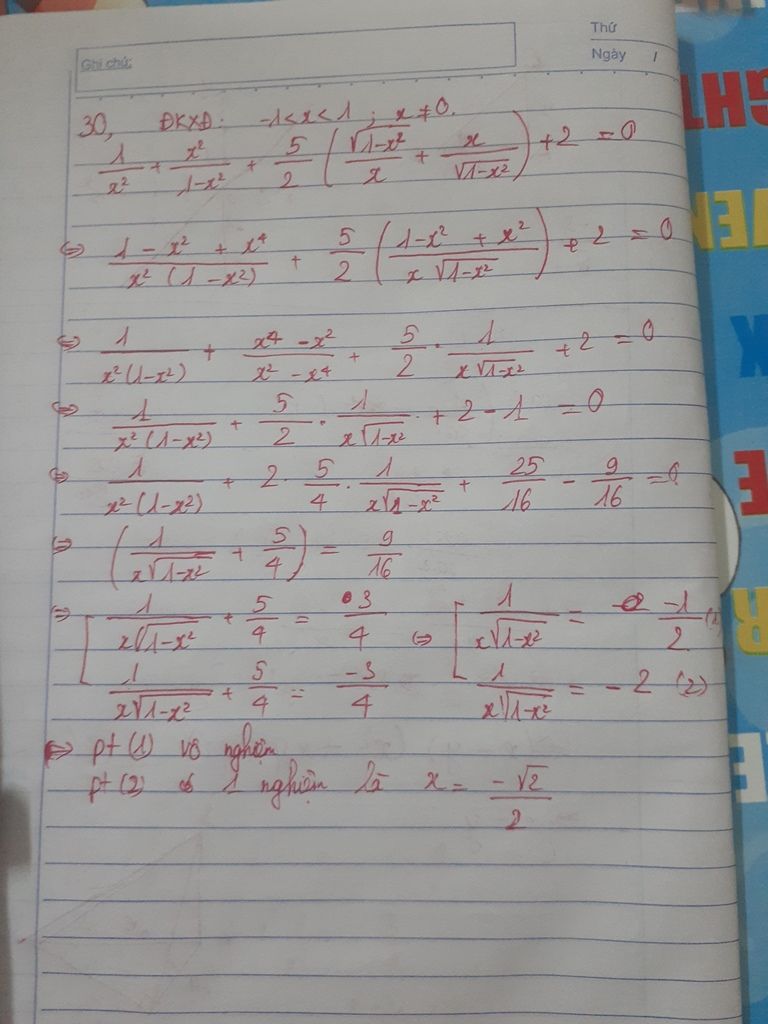 Thứ
Ngày /
Ghi chú:
30, ĐKXĐ: -1<x<1 ; x ≠ 0.
1/x² + x²/(1-x²) + 5/2 (√(1-x²)/x + x/√(1-x²)) + 2 = 0
⇔ (1 - x² + x⁴)/(x² (1 - x²)) + 5/2 ((1-x² + x²)/(x √(1-x²))) + 2 = 0
⇔ 1/(x²(1-x²)) + (x⁴ - x²)/(x² - x⁴) + 5/2 · 1/(x√(1-x²)) + 2 = 0
⇔ 1/(x²(1-x²)) + 5/2 · 1/(x√(1-x²)) + 2 - 1 = 0
⇔ 1/(x²(1-x²)) + 2 · 5/4 · 1/(x√(1-x²)) + 25/16 - 9/16 = 0
⇔ (1/(x√(1-x²)) + 5/4) = 9/16
⇔ [ 1/(x√(1-x²)) + 5/4 = 3/4 ⇔ [ 1/(x√(1-x²)) = -1/2 (1)
1/(x√(1-x²)) + 5/4 = -3/4 1/(x√(1-x²)) = -2 (2)
⇔ pt (1) vô nghiệm
pt (2) có 1 nghiệm là x = -√2/2
GHT
VEN
K
E
R
E